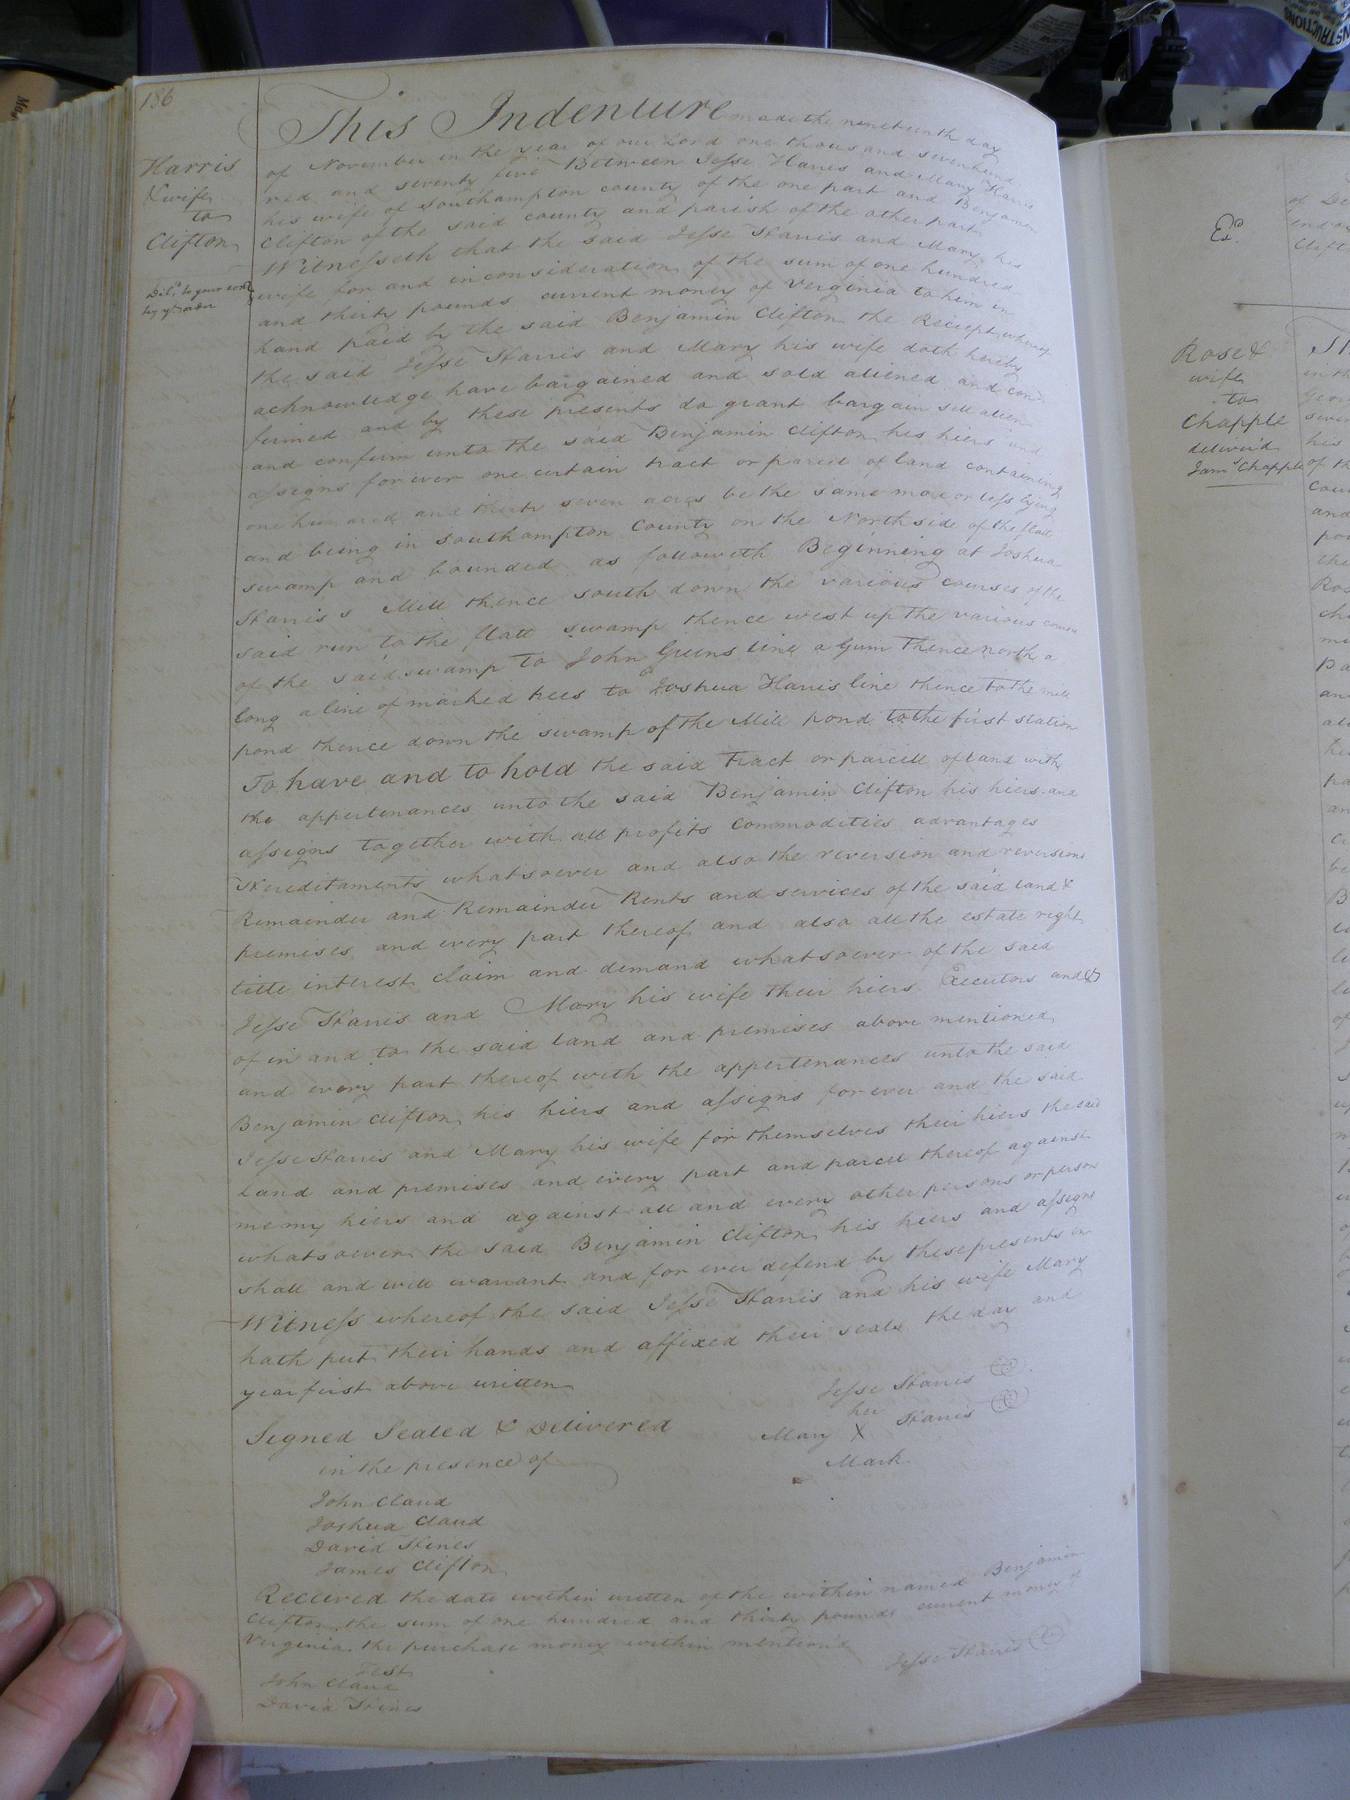 186
Harris
& wife
to
Clifton
This Indenture made the nineteenth day
of November in the year of our Lord one thousand sevenhund
red and seventy five Between Jesse Harris and Mary Harris
his wife of Southampton county of the one part and Benjamin
Clifton of the said county and parish of the other part
Witnesseth that the said Jesse Harris and Mary his
wife for and in consideration of the sum of one hundred
and thirty pounds current money of Verginia to him in
hand paid by the said Benjamin Clifton the Reciept whereof
the said Jesse Harris and Mary his wife doth hereby
acknowledge have bargained and sold aliened and con
firmed and by these presents do grant bargain sell alien
and confirm unto the said Benjamin Clifton his hiers and
assigns forever one certain tract or parcel of land containing
one hundred and thirty seven acres be the same more or less lying
and being in Southampton County on the North side of the flatt
swamp and bounded as followeth Beginning at Joshua
Harris's Mill thence south down the various courses of the
said run to the flatt swamp thence west up the various courses
of the said swamp to John Greens line a Gum thence north a
long a line of marked trees to Joshua Harris line thence to the mill
pond thence down the swamp of the Mill pond to the first station
To have and to hold the said Tract or parcell of land with
the appertenances unto the said Benjamin Clifton his hiers and
assigns together with all profits Commodities advantages
Hereditaments whatsoever and also the reversion and reversions
Remainder and Remainder Rents and services of the said land &
premises and every part thereof and also all the estate right
title interest claim and demand whatsoever of the said
Jesse Harris and Mary his wife their hiers Executors and &
of in and to the said land and premises above mentioned
and every part thereof with the appertenances unto the said
Benjamin Clifton his hiers and assigns forever and the said
Jesse Harris and Mary his wife for themselves their hiers the said
land and premises and every part and parcel thereof against
me my hiers and against all and every other persons or person
whatsoever the said Benjamin Clifton his hiers and assigns
shall and will warrant and for ever defend by these presents in
Witness whereof the said Jesse Harris and his wife Mary
hath put their hands and affixed their seals the day and
year first above written
Jesse Harris
her
Mary X Harris
Mark
Signed Sealed & Delivered
in the presence of
John Claud
Joshua Claud
David Hines
James Clifton
Received the date within written of the within named Benjamin
Clifton the sum of one hundred and thirty pounds current money of
Verginia the purchase money within mention'd
Jesse Harris
Test
John Claud
David Hines
Rose &
wife
to
Chapple
deliver'd
Jams Chapple